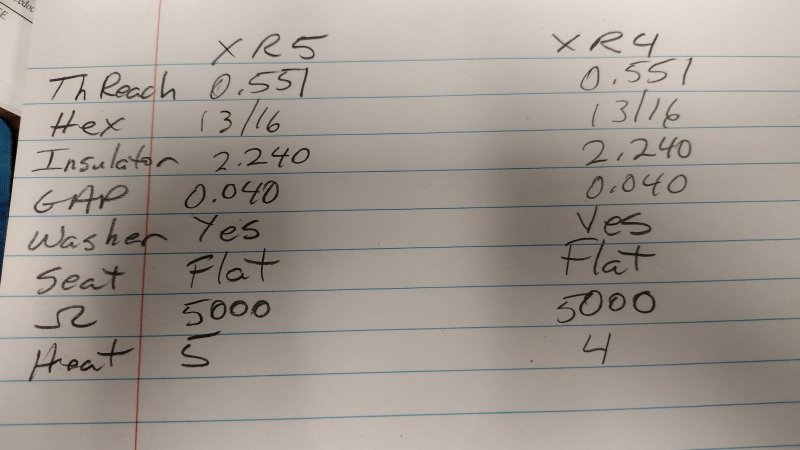 XR5 XR4
Th Reach 0.551 0.551
Hex 13/16 13/16
Insulator 2.240 2.240
GAP 0.040 0.040
Washer Yes Yes
Seat Flat Flat
Ω 5000 5000
Heat 5 4